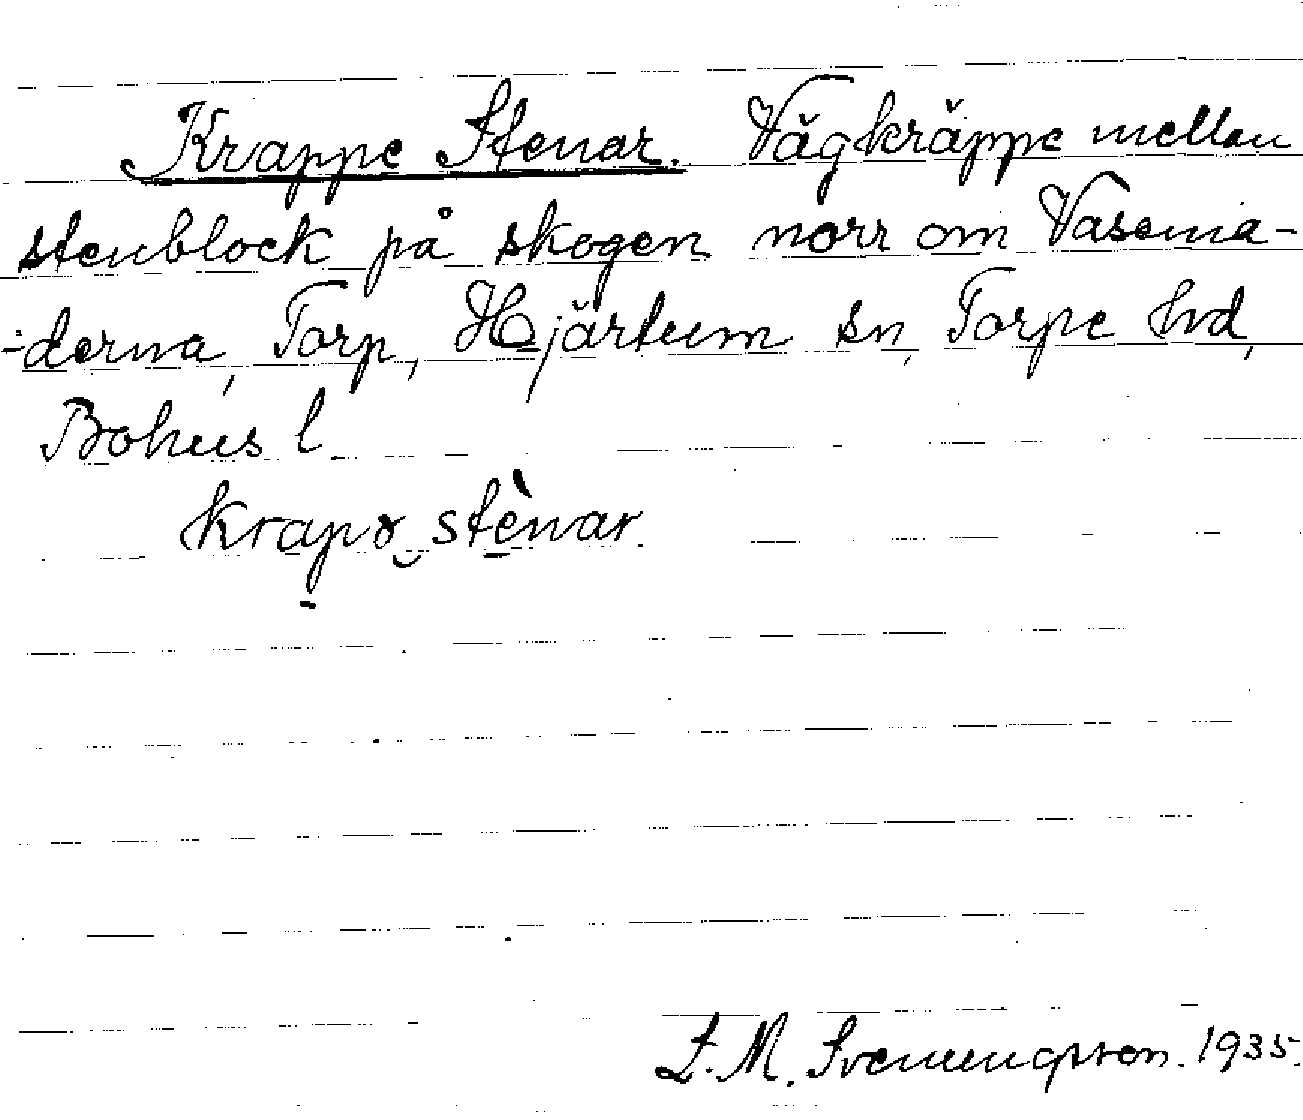 Krappe Stenar. Vägkräppe mellan
stenblock på skogen norr om Vasema-
-derna, Torp, Hjärtum sn, Torpe hd,
Bohus l.
krapɤ stènar.
L. M. Svenungson. 1935.